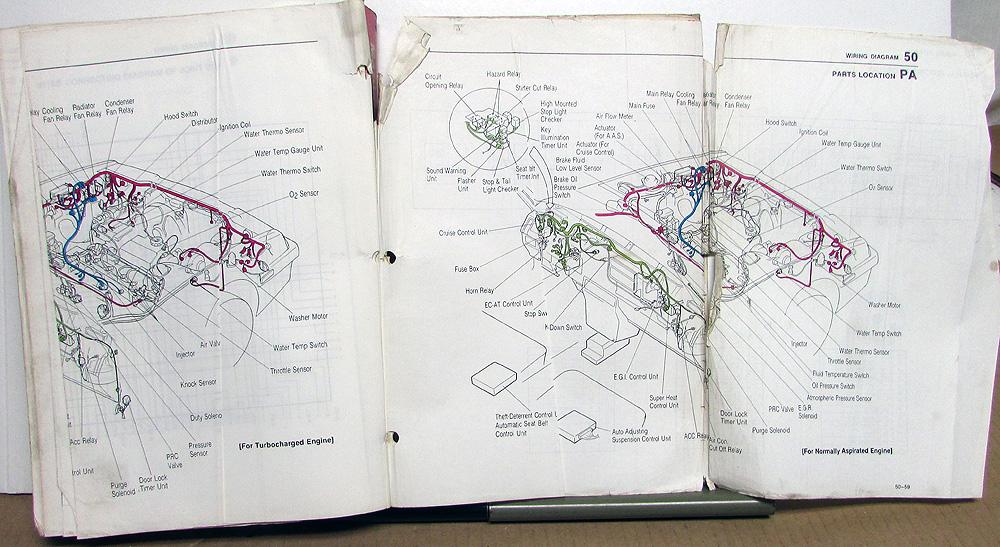 Cooling
Fan Relay
Radiator
Fan Relay
Condenser
Fan Relay
Hood Switch
Distributor
Ignition Coil
Water Thermo Sensor
Water Temp Gauge Unit
Water Thermo Switch
O₂ Sensor
Washer Motor
Water Temp Switch
Throttle Sensor
Injector
Air Valv
Knock Sensor
Duty Soleno
Acc Relay
trol Unit
Pressure
Sensor
PRC
Valve
Door Lock
Timer Unit
Purge
Solenoid
[For Turbocharged Engine]
Circuit
Opening Relay
Hazard Relay
Starter Cut Relay
High Mounted
Stop Light
Checker
Key
Illumination
Timer Unit
Sound Warning
Unit
Flasher
Unit
Stop & Tail
Light Checker
Seat blt
Timer Unit
Main Relay
Cooling
Fan Relay
Main Fuse
Air Flow Meter
Actuator
(For A.A.S.)
Actuator (For
Cruise Control)
Brake Fluid
Low Level Sensor
Brake Oil
Pressure
Switch
Cruise Control Unit
Fuse Box
Horn Relay
EC-AT Control Unit
Stop Swi
K-Down Switch
E.G.I. Control Unit
Super Heat
Control Unit
Theft-Deterrent Control U
Automatic Seat Belt
Control Unit
Auto Adjusting
Suspension Control Unit
ACC Relay
WIRING DIAGRAM 50
PARTS LOCATION PA
Condenser
Fan Relay
Hood Switch
Ignition Coil
Water Temp Gauge Unit
Water Thermo Switch
O₂ Sensor
Washer Motor
Water Temp Switch
Injector
Water Thermo Sensor
Throttle Sensor
Fluid Temperature Switch
Oil Pressure Switch
Atmospheric Pressure Sensor
PRC Valve
E.G.R.
Solenoid
Door Lock
Timer Unit
Purge Solenoid
Air Con.
Cut Off Relay
[For Normally Aspirated Engine]
50–59